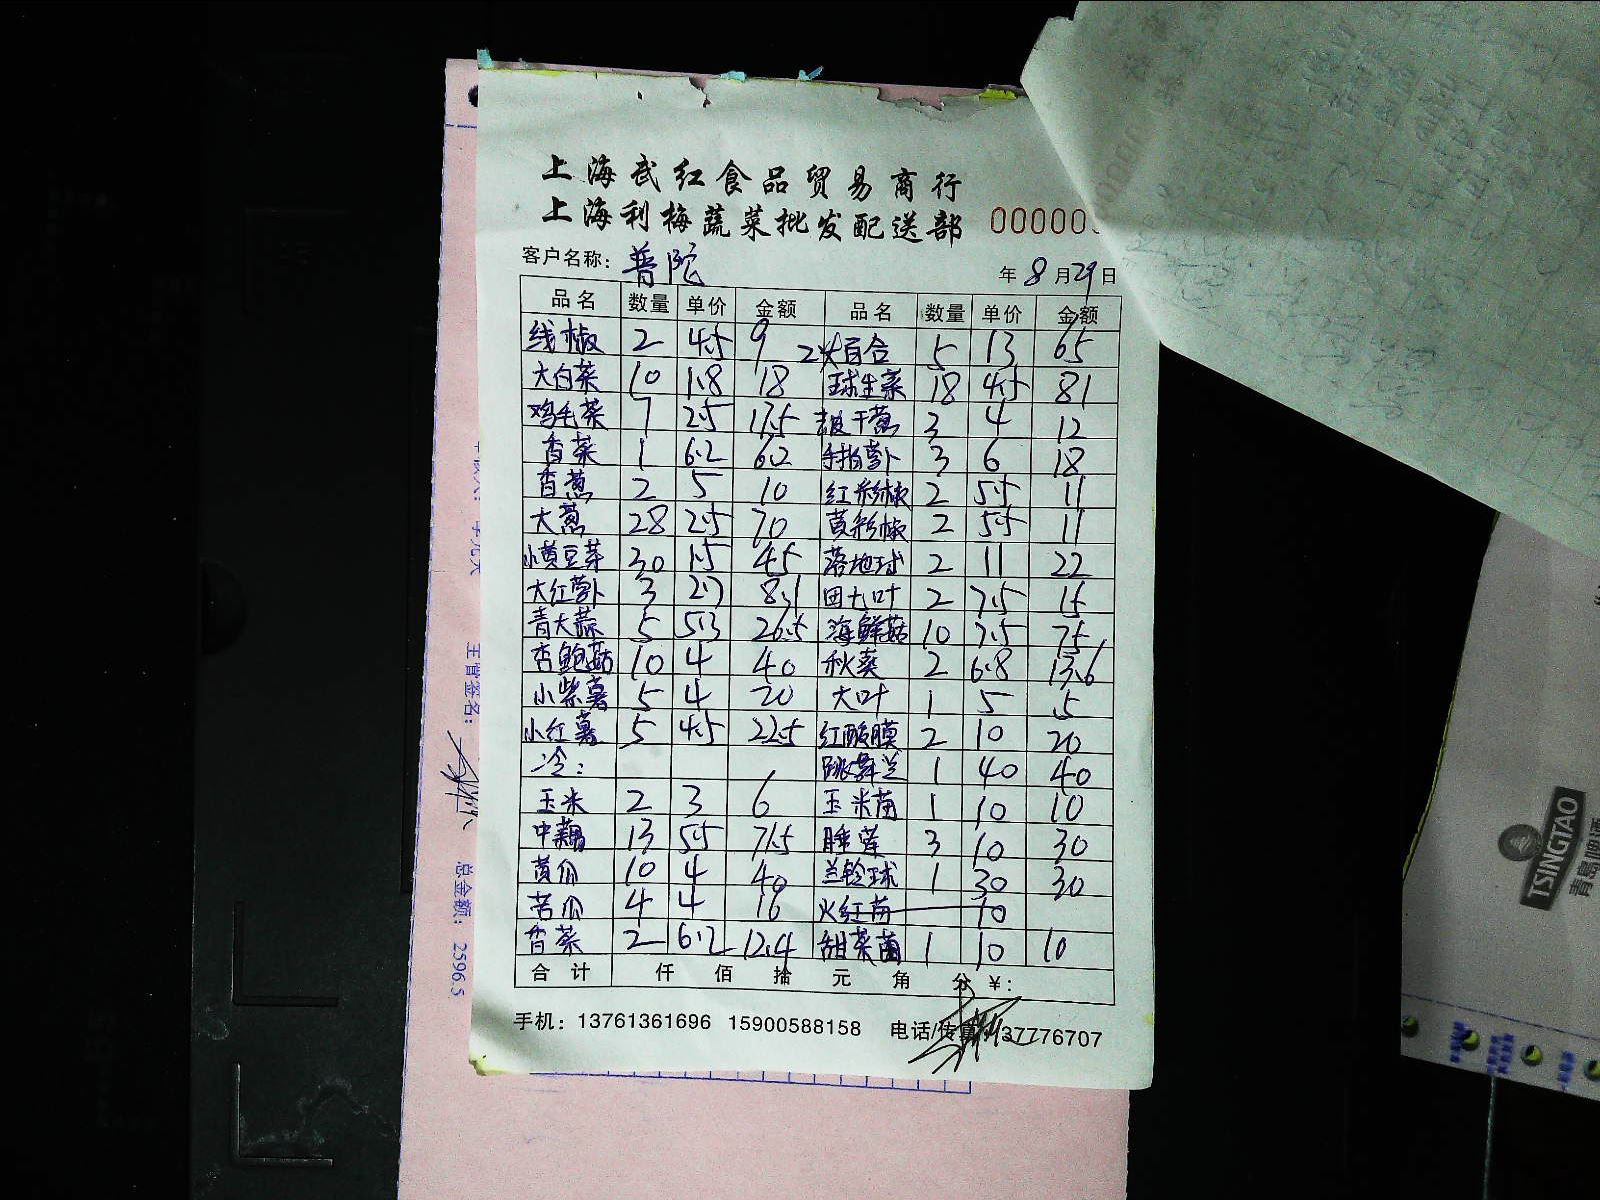 上海武红食品贸易商行
上海利梅蔬菜批发配送部 000000
客户名称: 普陀 年 8 月 29 日
品名 数量 单价 金额 品名 数量 单价 金额
线椒 2 4.5 9 2头百合 5 13 65
大白菜 10 1.8 18 球生菜 18 4.5 81
鸡毛菜 7 2.5 17.5 干葱 3 4 12
香菜 1 6.2 6.2 手指萝卜 3 6 18
香葱 2 5 10 红彩椒 2 5.5 11
大葱 28 2.5 70 黄彩椒 2 5.5 11
小黄豆芽 30 1.5 45 落地球 2 11 22
大红萝卜 3 2.7 8.1 田七叶 2 7.5 15
青大蒜 5 5.3 26.5 海鲜菇 10 7.5 75
杏鲍菇 10 4 40 秋葵 2 6.8 13.6
小紫薯 5 4 20 大叶 1 5 5
小红薯 5 4.5 22.5 红酸膜 2 10 20
冷: 跳舞兰 1 40 40
玉米 2 3 6 玉米苗 1 10 10
中藕 13 5.5 71.5 睡莲 3 10 30
黄瓜 10 4 40 兰铃球 1 30 30
苦瓜 4 4 16 火红苗 10
香菜 2 6.2 12.4 甜菜苗 1 10 10
合计 仟 佰 拾 元 角 分 ¥:
手机: 13761361696 15900588158 电话/传真: 37776707
主管签名:
总金额: 2596.5
TSINGTAO
青島啤酒